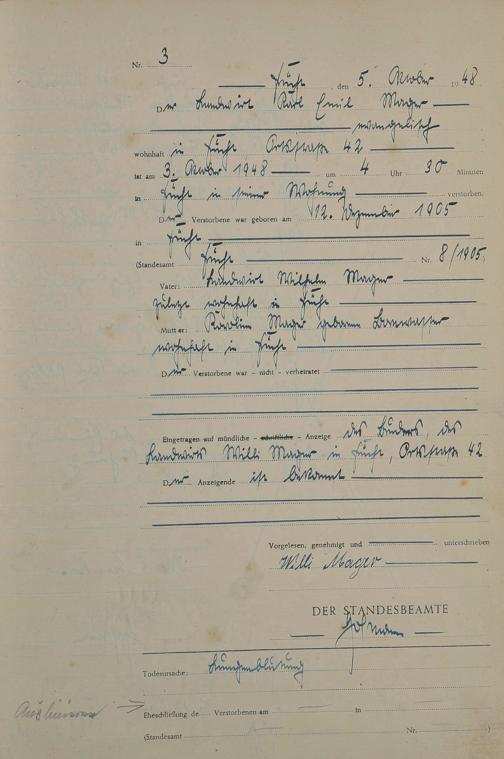 Nr. 3
den 5. Oktober 1948
Der Landwirt Karl Emil Mager
evangelisch
wohnhaft in Ortstraße 42
ist am 3. Oktober 1948 um 4 Uhr 30 Minuten
in in seiner Wohnung verstorben.
Der Verstorbene war geboren am 12. Dezember 1905
in
(Standesamt Nr. 8/1905.
Vater: Landwirt Wilhelm Mager
zuletzt wohnhaft in
Mutter: Karoline Mager geborene
wohnhaft in
Der Verstorbene war - nicht - verheiratet
Eingetragen auf mündliche - schriftliche - Anzeige des Bruders, des
Landwirts Willi Mager in Ortstraße 42
Der Anzeigende ist bekannt
Vorgelesen, genehmigt und unterschrieben
Willi Mager
DER STANDESBEAMTE
Todesursache: Lungenblutung
Eheschließung de Verstorbenen am in
(Standesamt Nr. )